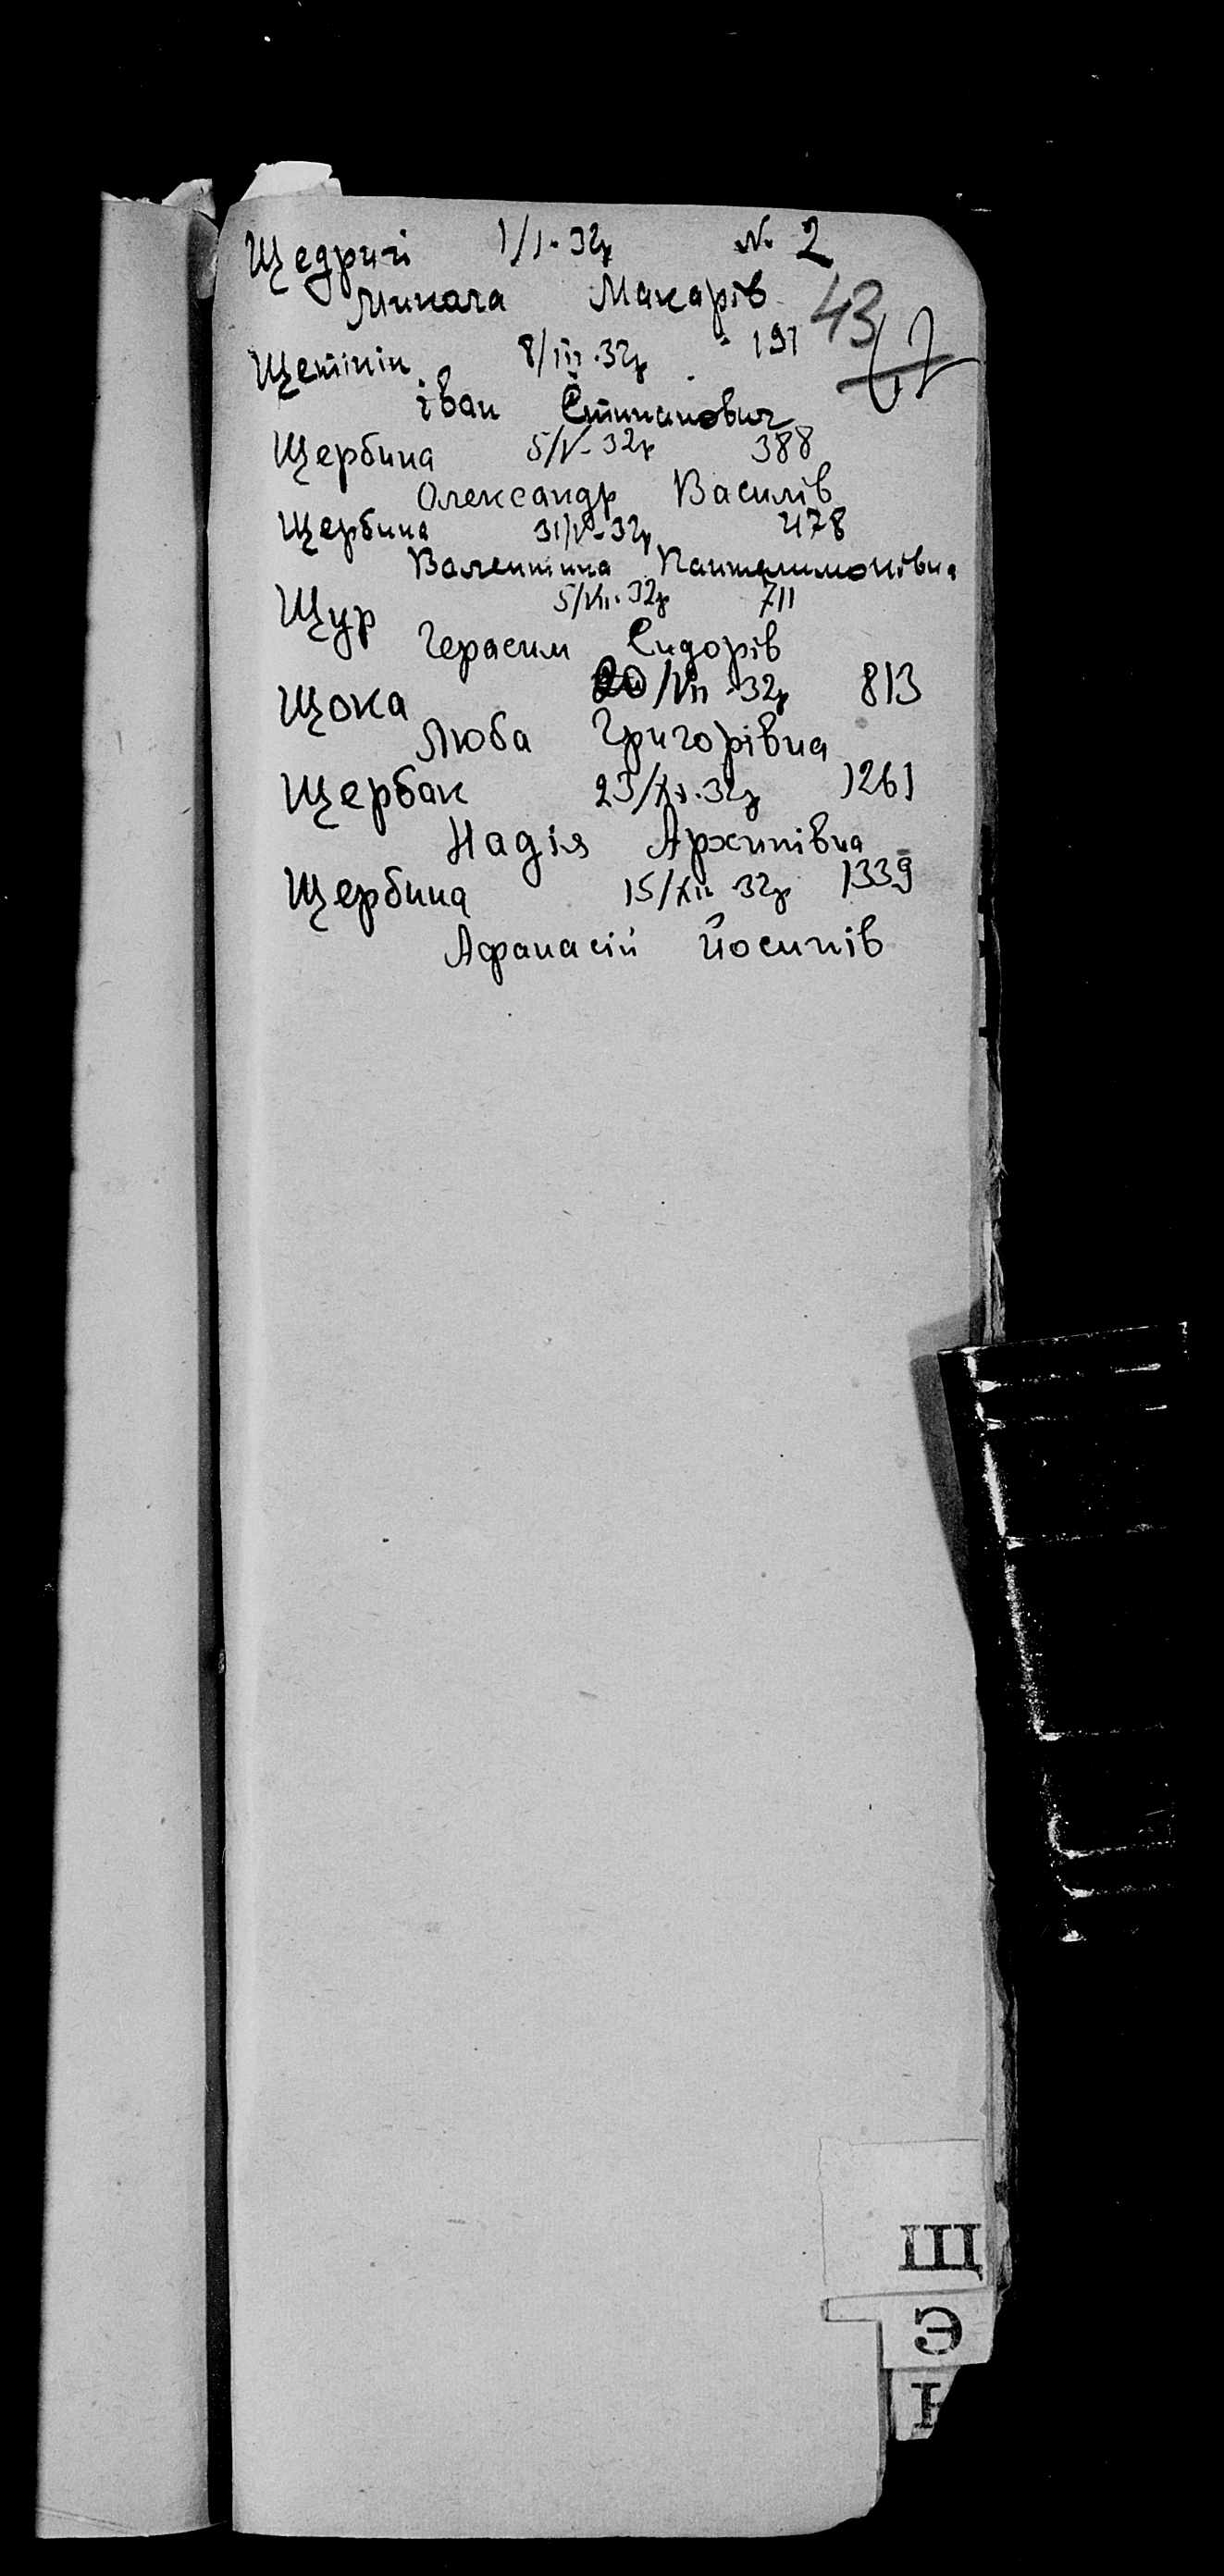 Щедричі 1/I-32р № 2
Микола Макарів
43
47
Щетінін 8/III-32р " 191
Іван Степанович
Щербина 5/V-32р 388
Олександр Василів
Щербина 31/V-32р 478
Валентина Пантелимонівна
Щур 5/VII-32р 711
Герасим Сидорів
Щока 20/VII-32р 813
Люба Григорівна
Щербак 23/XI-32р 1261
Надія Архипівна
Щербина 15/XII-32р 1339
Афанасій Йосипів
Щ
Э